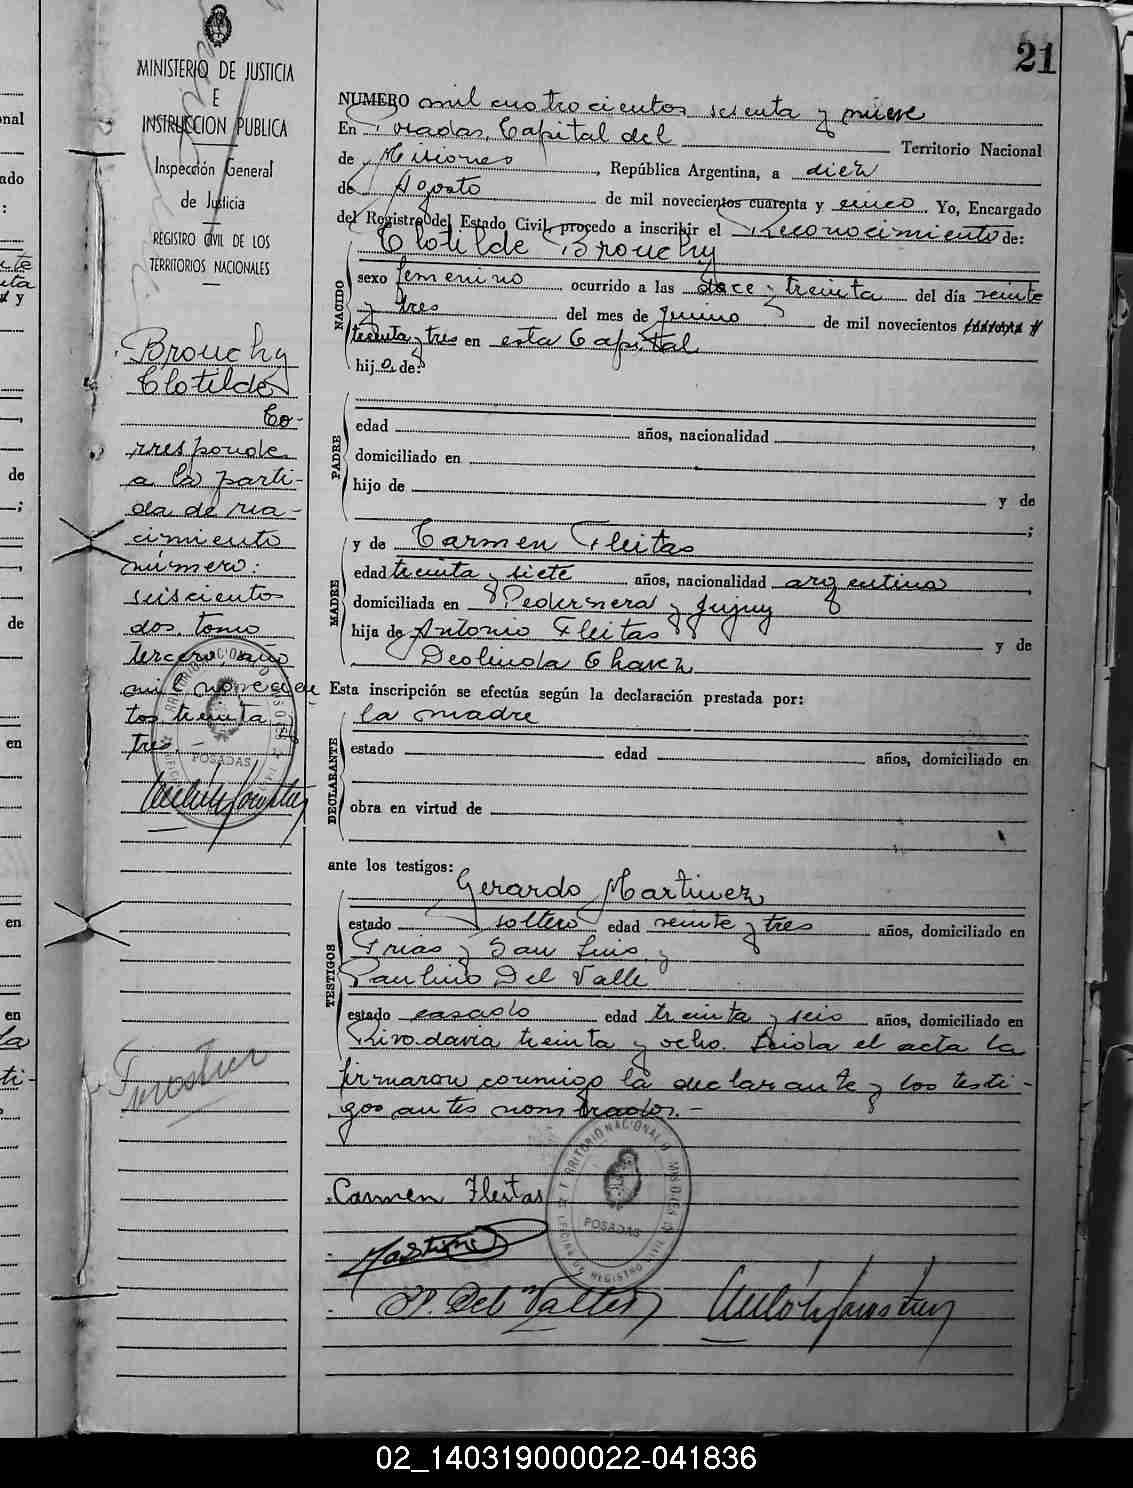 21
MINISTERIO DE JUSTICIA
E
INSTRUCCION PUBLICA
Inspección General
de Justicia
REGISTRO CIVIL DE LOS
TERRITORIOS NACIONALES
Brouchy
Clotilde
Co-
rresponde
a la parti-
da de na-
cimiento
número:
seiscientos
dos, tomo
tercero, año
mil novecien
tos treinta y
tres.-
NUMERO mil cuatrocientos sesenta y nueve
En Posadas, Capital del Territorio Nacional
de Misiones, República Argentina, a diez
de Agosto de mil novecientos cuarenta y cinco. Yo, Encargado
del Registro del Estado Civil, procedo a inscribir el Reconocimiento de:
Clotilde Brouchy
NACIDO
sexo femenino ocurrido a las doce y treinta del día veinte
y tres del mes de Junio de mil novecientos
treinta y tres en esta Capital
hija de:
PADRE
edad años, nacionalidad ,
domiciliado en
hijo de y de
;
MADRE
y de Carmen Fleitas
edad treinta y siete años, nacionalidad argentina,
domiciliada en Pedernera y Jujuy
hija de Antonio Fleitas y de
Deolinda Chavez
Esta inscripción se efectúa según la declaración prestada por:
la madre
DECLARANTE
estado edad años, domiciliado en
obra en virtud de
ante los testigos:
Gerardo Martinez
TESTIGOS
estado soltero edad veinte y tres años, domiciliado en
Frias y San Luis, y
Paulino Del Valle
estado casado edad treinta y seis años, domiciliado en
Rivadavia treinta y ocho. Leida el acta la
firmaron conmigo la declarante y los testi-
gos antes nombrados.-
Carmen Fleitas
Martinez
P. Del Valle
TERRITORIO NACIONAL D MISIONES
POSADAS
OFICINA DE REGISTRO CIVIL
nal
ado
:
y
de
;
,
de
en
en
en
la
ti-
02_140319000022-041836